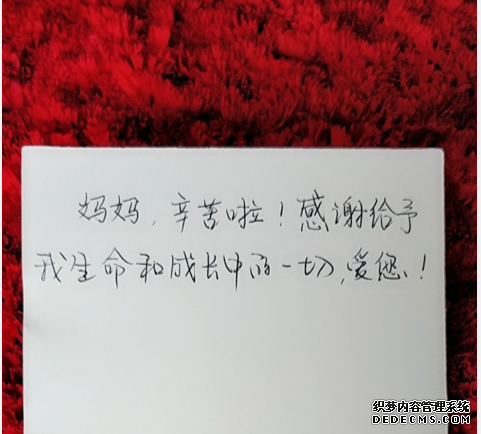 妈妈，辛苦啦！感谢给予
我生命和成长中的一切，爱您！
织梦内容管理系统
DEDECMS.COM